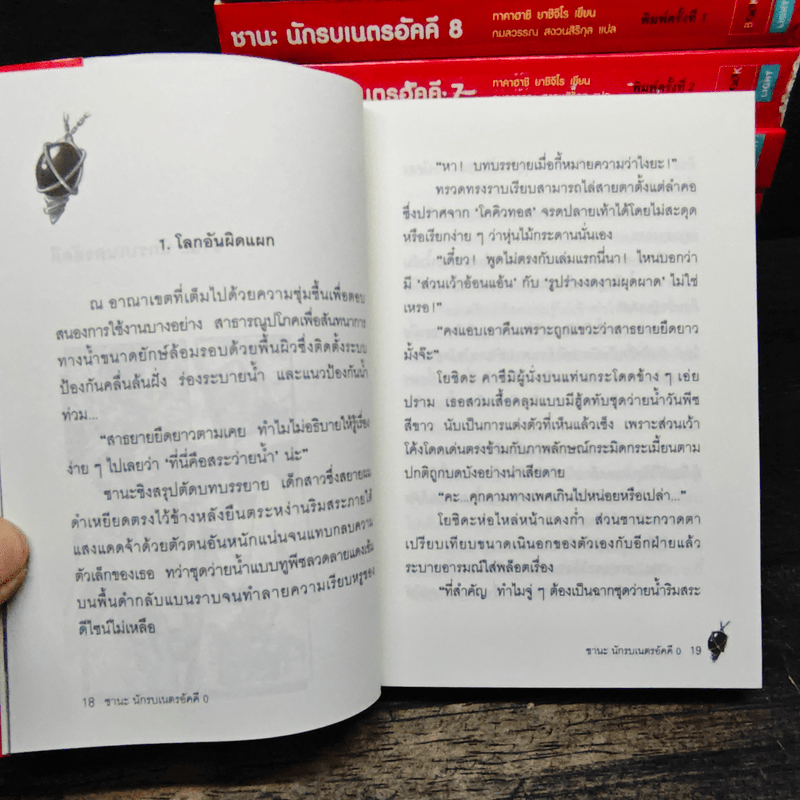 ชานะ นักรบเนตรอัคคี 8
ทาคาฮาชิ ยาชิจิโร เขียน
กมลวรรณ สงวนสิริกุล แปล
พิมพ์ครั้งที่
เนตรอัคคี 7
ทาคาฮาชิ ยาชิจิโร เขียน
พิมพ์ครั้งที่
LIGHT
1. โลกอันผิดแผก
ณ อาณาเขตที่เต็มไปด้วยความชุ่มชื้นเพื่อตอบ
สนองการใช้งานบางอย่าง สาธารณูปโภคเพื่อสันทนาการ
ทางน้ำขนาดยักษ์ล้อมรอบด้วยพื้นผิวซึ่งติดตั้งระบบ
ป้องกันคลื่นล้นฝั่ง ร่องระบายน้ำ และแนวป้องกันน้ำ
ท่วม...
“สาธยายยืดยาวตามเคย ทำไมไม่อธิบายให้รู้เรื่อง
ง่าย ๆ ไปเลยว่า ‘ที่นี่คือสระว่ายน้ำ’ น่ะ”
ชานะชิงสรุปตัดบทบรรยาย เด็กสาวซึ่งสยายผม
ดำเหยียดตรงไว้ข้างหลังยืนตระหง่านริมสระภายใต้
แสงแดดจ้าด้วยตัวตนอันหนักแน่นจนแทบกลบความ
ตัวเล็กของเธอ ทว่าชุดว่ายน้ำแบบทูพีซลวดลายแดงเข้ม
บนพื้นดำกลับแบนราบจนทำลายความเรียบหรูของ
ดีไซน์ไม่เหลือ
18 ชานะ นักรบเนตรอัคคี 0
“หา! บทบรรยายเมื่อกี้หมายความว่าไงยะ!”
ทรวดทรงราบเรียบสามารถไล่สายตาตั้งแต่ลำคอ
ซึ่งปราศจาก ‘โคคิวทอส’ จรดปลายเท้าได้โดยไม่สะดุด
หรือเรียกง่าย ๆ ว่าหุ่นไม้กระดานนั่นเอง
“เดี๋ยว! พูดไม่ตรงกับเล่มแรกนี่นา! ไหนบอกว่า
มี ‘ส่วนเว้าอ้อนแอ้น’ กับ ‘รูปร่างงดงามผุดผาด’ ไม่ใช่
เหรอ!”
“คงแอบเอาคืนเพราะถูกแขวะว่าสาธยายยืดยาว
มั้งจ๊ะ”
โยชิดะ คาซึมิผู้นั่งบนแท่นกระโดดข้าง ๆ เอ่ย
ปราม เธอสวมเสื้อคลุมแบบมีฮู้ดทับชุดว่ายน้ำวันพีซ
สีขาว นับเป็นการแต่งตัวที่เห็นแล้วเซ็ง เพราะส่วนเว้า
โค้งโดดเด่นตรงข้ามกับภาพลักษณ์กระมิดกระเมี้ยนตาม
ปกติถูกบดบังอย่างน่าเสียดาย
“คะ...คุกคามทางเพศเกินไปหน่อยหรือเปล่า...”
โยชิดะห่อไหล่หน้าแดงก่ำ ส่วนชานะกวาดตา
เปรียบเทียบขนาดเนินอกของตัวเองกับอีกฝ่ายแล้ว
ระบายอารมณ์ใส่พล็อตเรื่อง
“ที่สำคัญ ทำไมจู่ ๆ ต้องเป็นฉากชุดว่ายน้ำริมสระ
ชานะ นักรบเนตรอัคคี 0 19